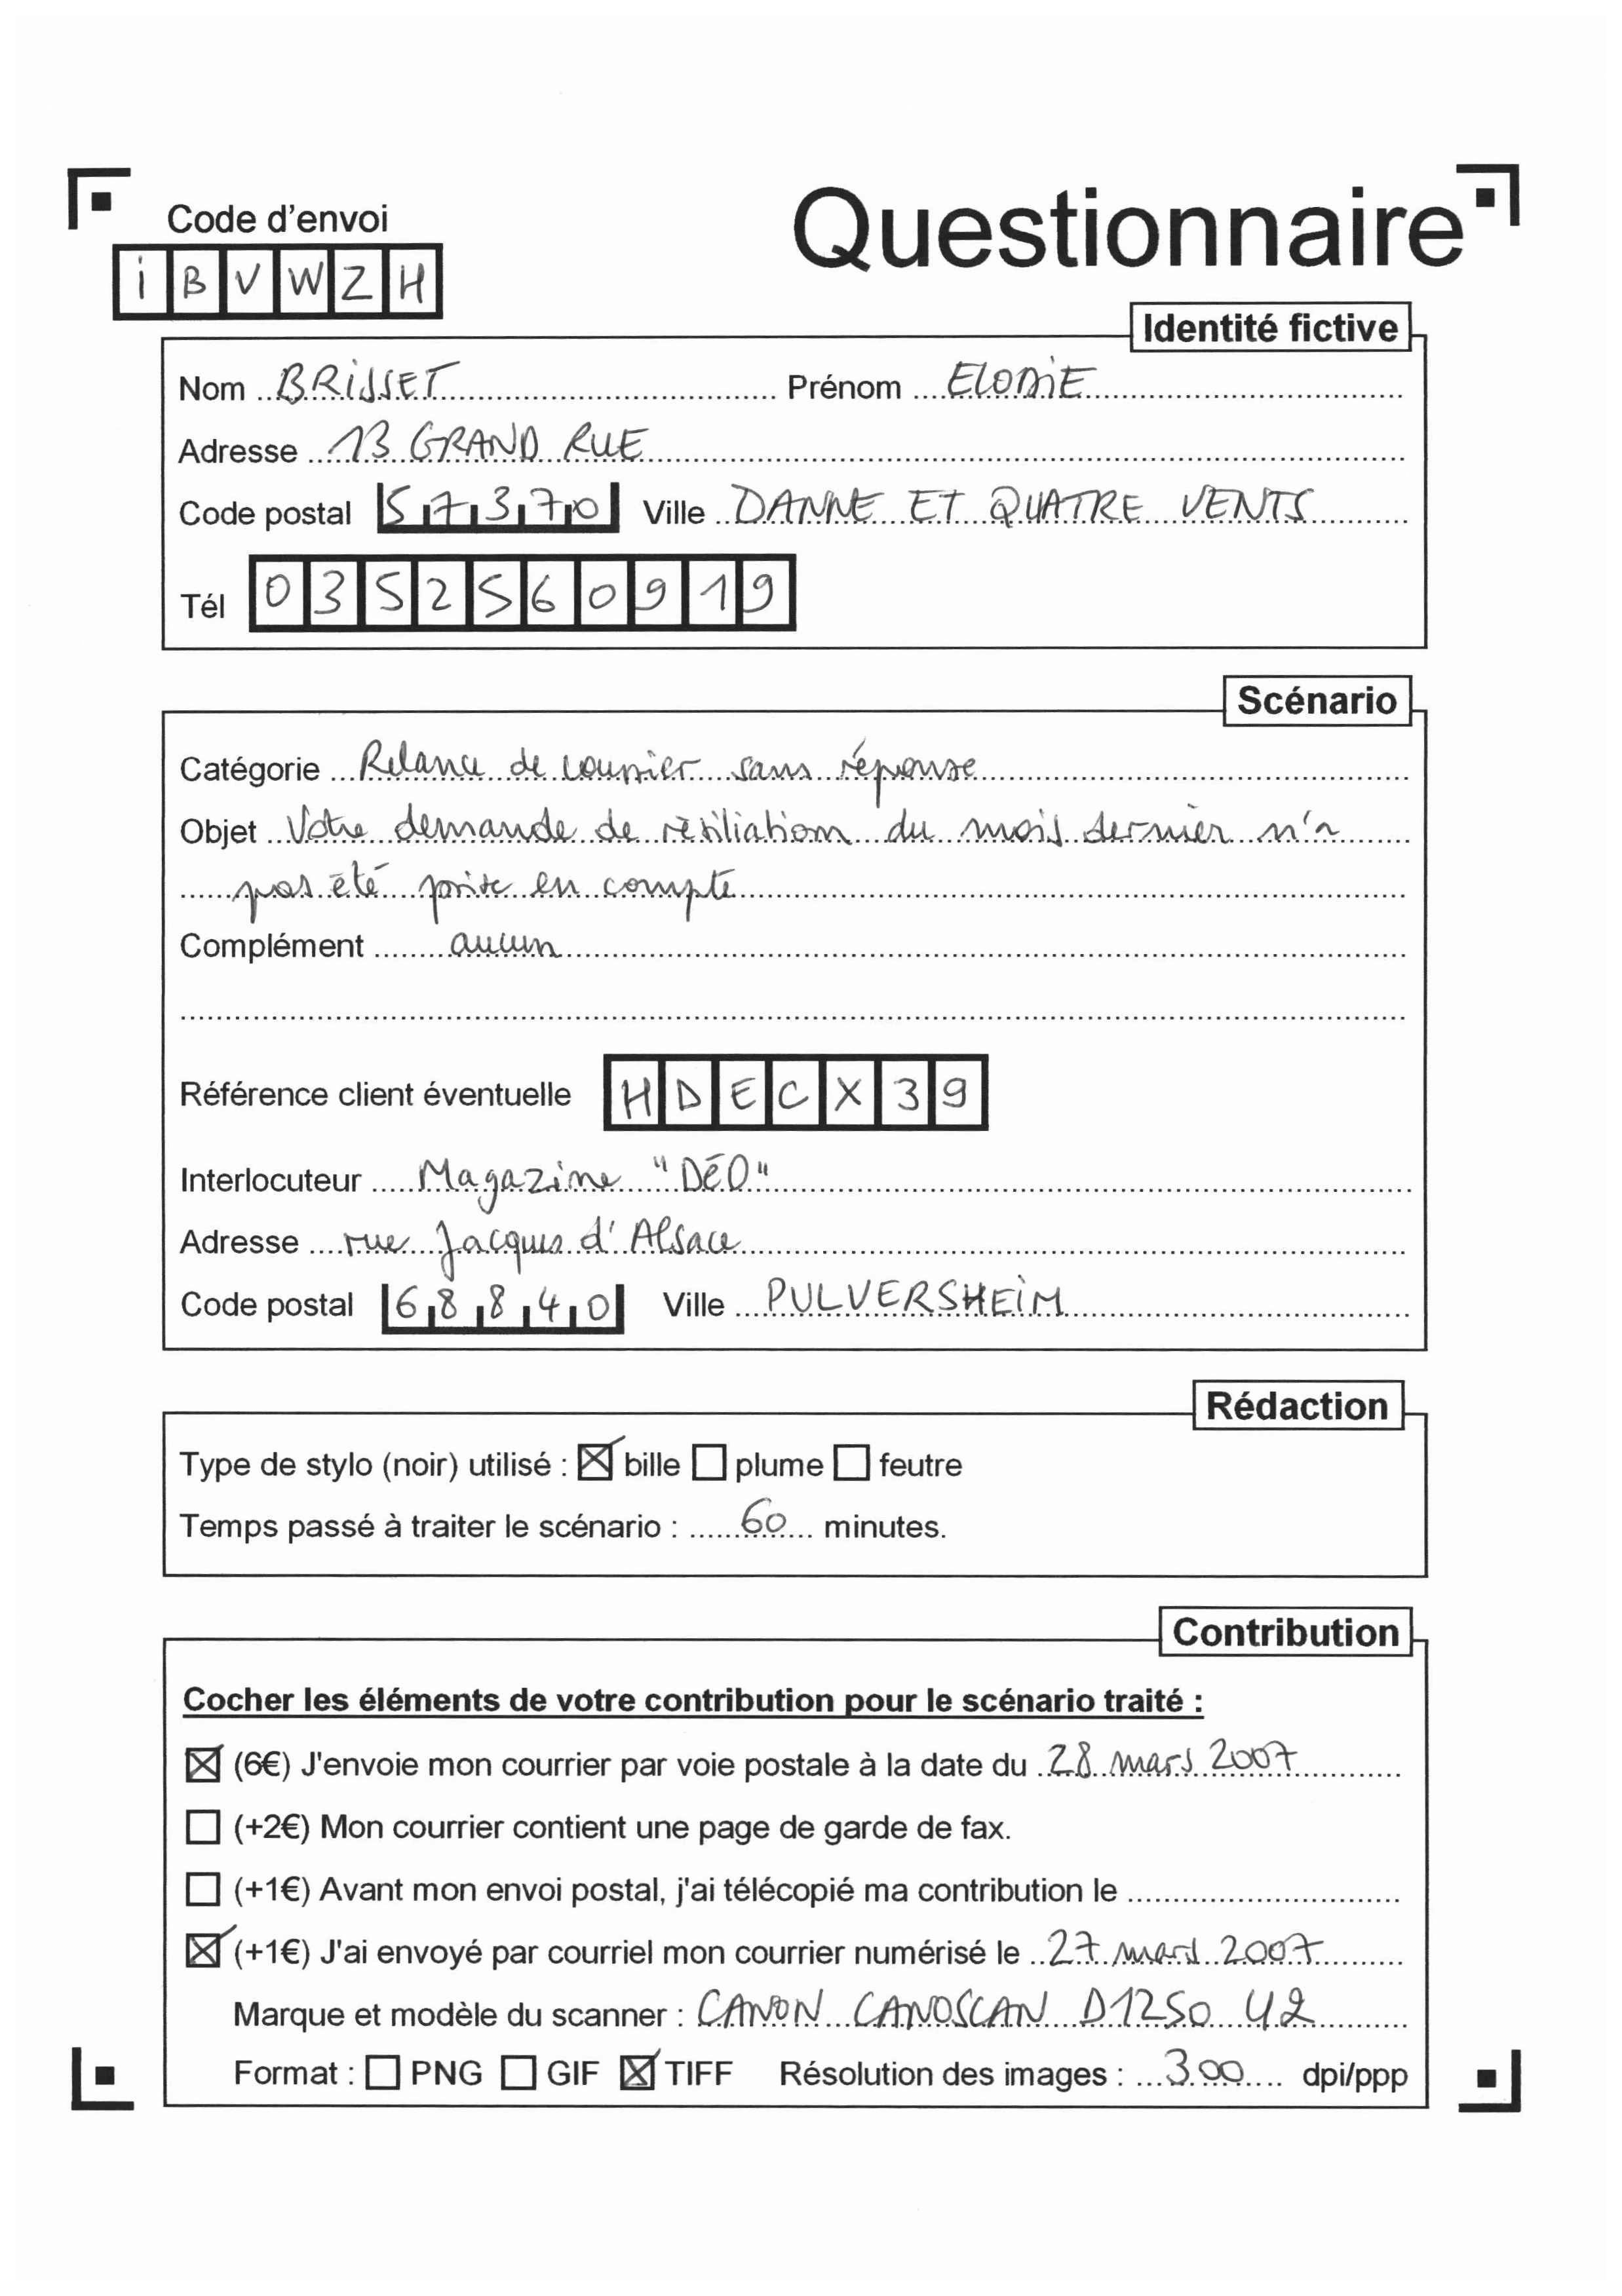 Code d'envoi
Questionnaire
i B V W Z H
Identité fictive
Nom BRiSSET Prénom ELODiE
Adresse 13 GRAND RUE
Code postal 57370 Ville DANNE ET QUATRE VENTS
Tél 0352560919
Scénario
Catégorie Relance de courrier sans réponse
Objet Votre demande de résiliation du mois dernier n'a
pas été prise en compte
Complément aucun
Référence client éventuelle HDECX39
Interlocuteur Magazine "DÉO"
Adresse rue Jacques d'Alsace
Code postal 68840 Ville PULVERSHEiM
Rédaction
Type de stylo (noir) utilisé : ☒ bille ☐ plume ☐ feutre
Temps passé à traiter le scénario : 60 minutes.
Contribution
Cocher les éléments de votre contribution pour le scénario traité :
☒ (6€) J'envoie mon courrier par voie postale à la date du 28 mars 2007
☐ (+2€) Mon courrier contient une page de garde de fax.
☐ (+1€) Avant mon envoi postal, j'ai télécopié ma contribution le
☒ (+1€) J'ai envoyé par courriel mon courrier numérisé le 27 mars 2007
Marque et modèle du scanner : CANON CANOSCAN D1250 U2
Format : ☐ PNG ☐ GIF ☒ TIFF Résolution des images : 300 dpi/ppp